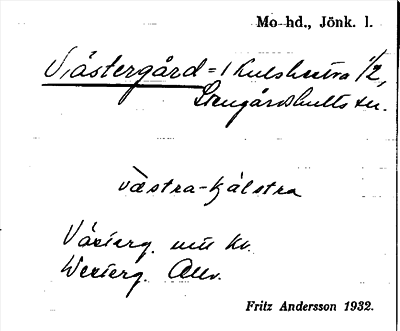 Mo hd., Jönk. l.
Västergård = 1 Kulshestra 1/2,
Stengårdshults sn.
västra-kjälstra
Västerg. utt kv.
Westerg. Allv.
Fritz Andersson 1932.